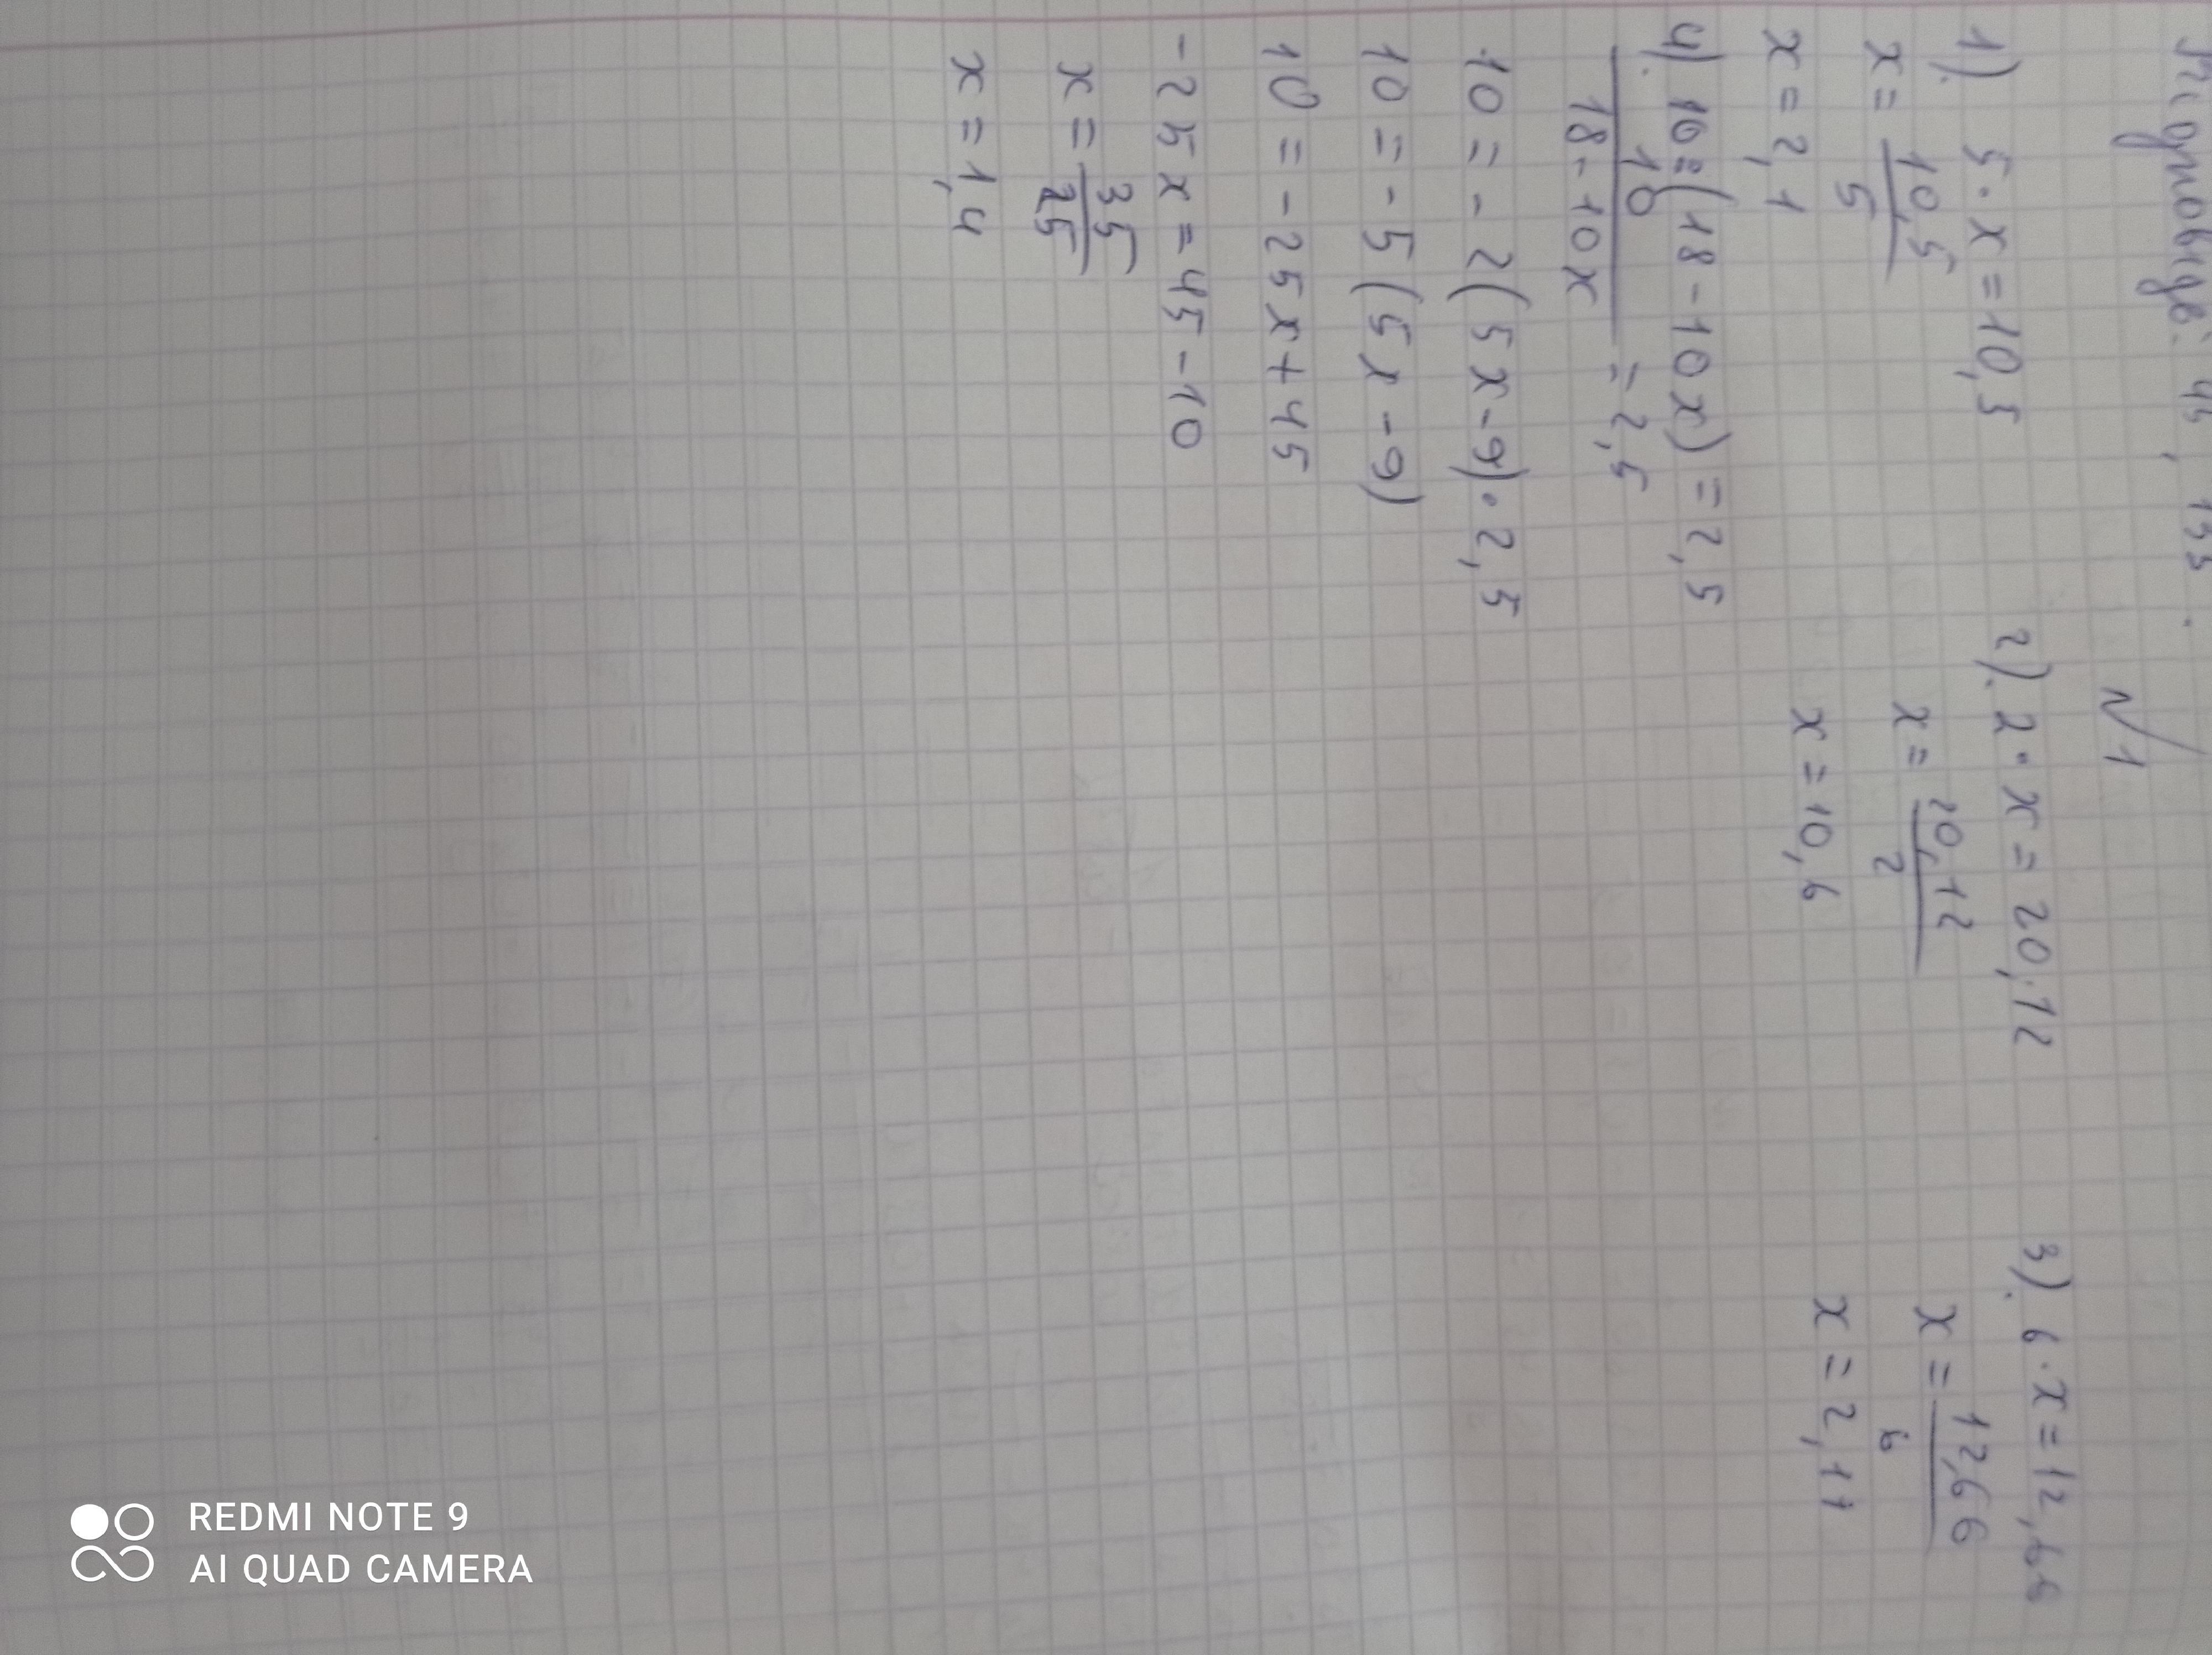 Відповідь: 45, 135.
N1
1). 5·x=10,5
x= 10,5
5
x=2,1
2). 2·x=20,12
x= 20,12
2
x=10,6
3). 6·x=12,66
x= 12,66
6
x=2,11
4). 10:(18-10x)=2,5
10
18-10x
=2,5
10=-2(5x-9)·2,5
10=-5(5x-9)
10=-25x+45
-25x=45-10
x= 35
25
x=1,4
REDMI NOTE 9
AI QUAD CAMERA